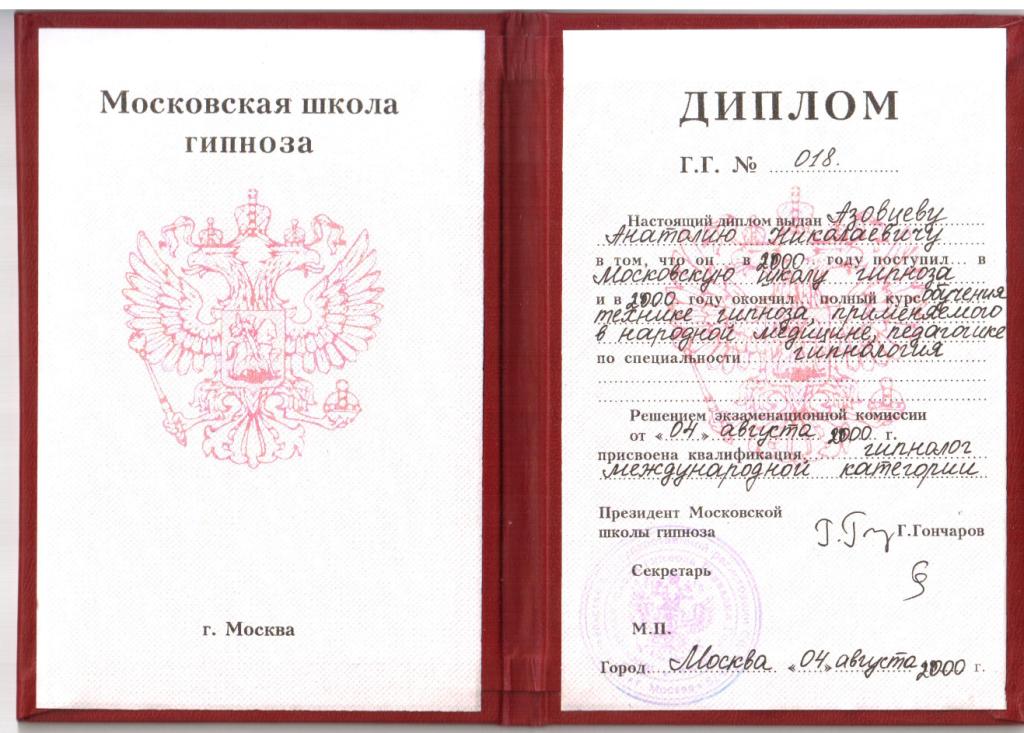 Московская школа
гипноза
г. Москва
ДИПЛОМ
Г.Г. № 018.
Настоящий диплом выдан Азовцеву
Анатолию Николаевичу
в том, что он в 2000 году поступил в
Московскую школу гипноза
и в 2000 году окончил полный курс обучения
технике гипноза, применяемого
в народной медицине, педагогике
по специальности гипнология
Решением экзаменационной комиссии
от «04» августа 2000 г.
присвоена квалификация гипнолог
международной категории
Президент Московской
школы гипноза Г.Гончаров
Секретарь
М.П.
Город Москва «04» августа 2000 г.